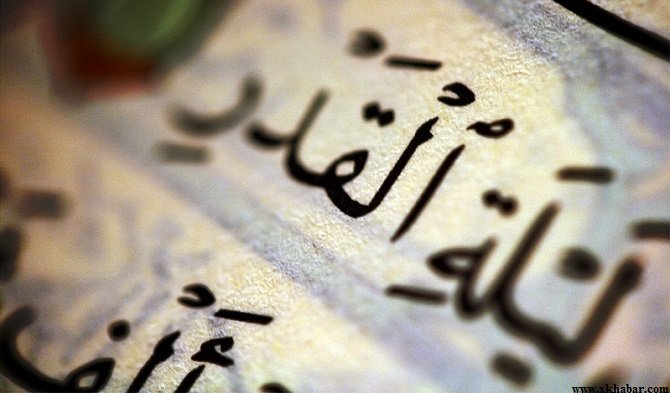 لَيْلَةِ ٱلْقَدْرِ
أَلْف
www.xkhabar.com